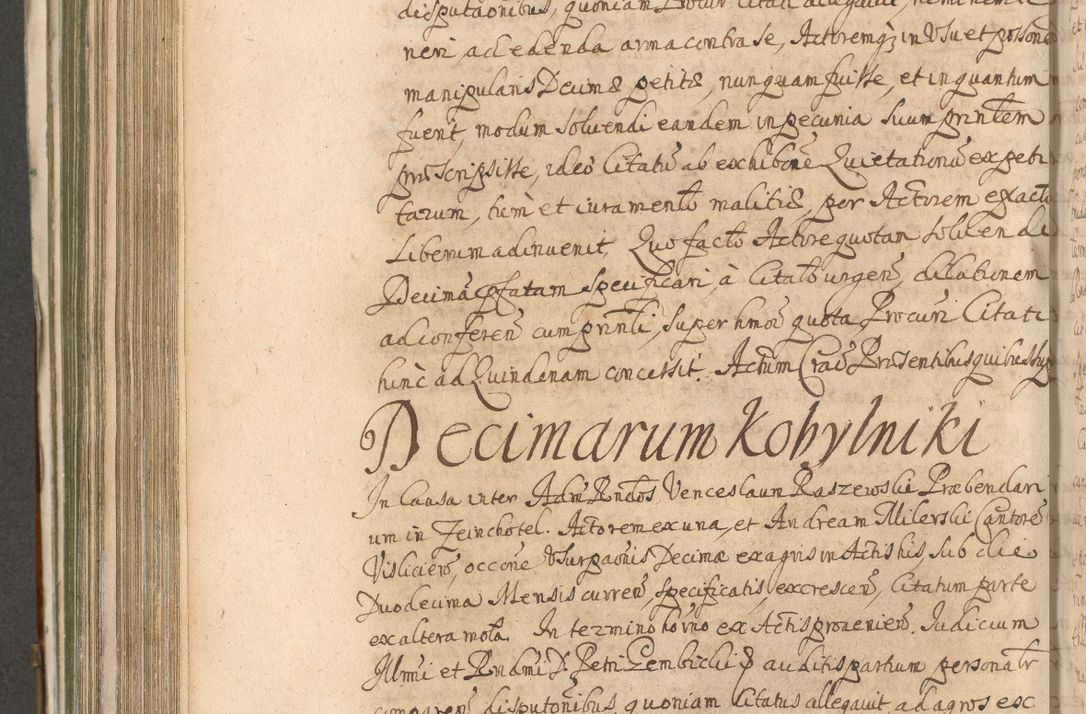 disputaonibus, quoniam Procur Citati allegavit, neminem te
neri, ad edenda arma contra se, Actoremq; in Usu et possone
manipularis Decimæ petitæ, nunquam fuisse, et inquantum
fuerit, modum solvendi eandem in pecunia suum prntem
præscripsisse, ideo Citatu ab exhibone Quietationu expeti
tarum, tum et iuramento malitiæ, per Actorem exacto
Liberum adinvenit, Quo facto Actore quotam solven di
Decimæ pfatam specificari, à Citato urgen, dilationem
ad conferen cum prnti, super hmoi quota Procuri Citati
hinc ad Quindenam concessit. Actum Crac Præsentibus quibus supr
Decimarum Kobylniki
In Causa inter Adm Rndos Venceslaum Raszewski Præbendari
um in Jeinchotel. Actorem ex una, et Andream Milerski Cantore
Vislicien, occone Usurpaonis Decimæ ex agris in Actis his, sub die
Duodecima Mensis curren, specificatis excrescen, Citatum parte
ex altera mota. In termino hovno ex Actis provenien. Iudicium
Illmi et Rndmi D. Petri Gembicki &c auditis partium personalr
comparen disputonibus, quoniam Citatus allegavit ad agros exc